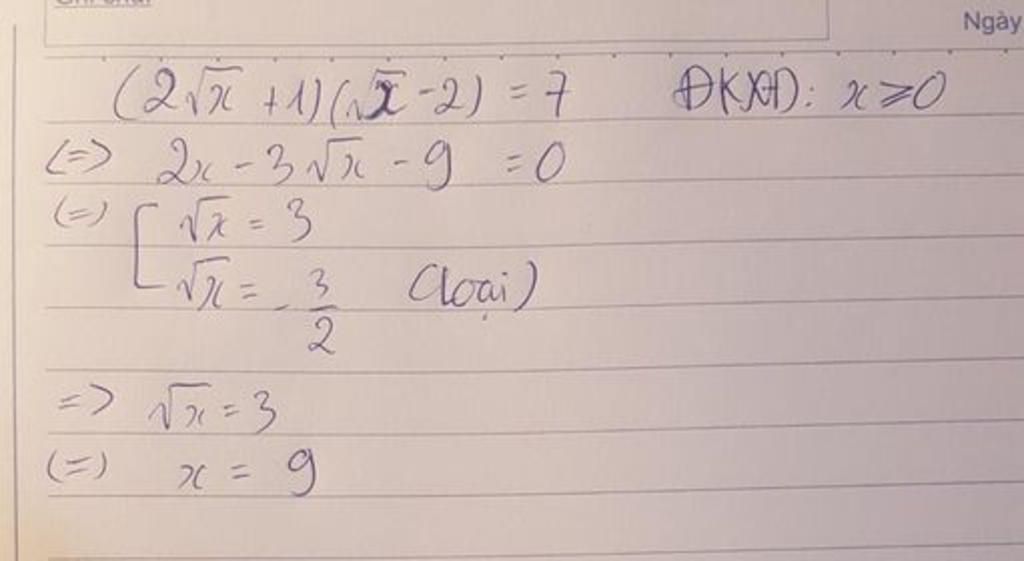 Ngày
(2√x + 1)(√x - 2) = 7 ĐKXĐ: x ≥ 0
(=) 2x - 3√x - 9 = 0
(=) [ √x = 3
√x = - 3/2 (loại)
=> √x = 3
(=) x = 9